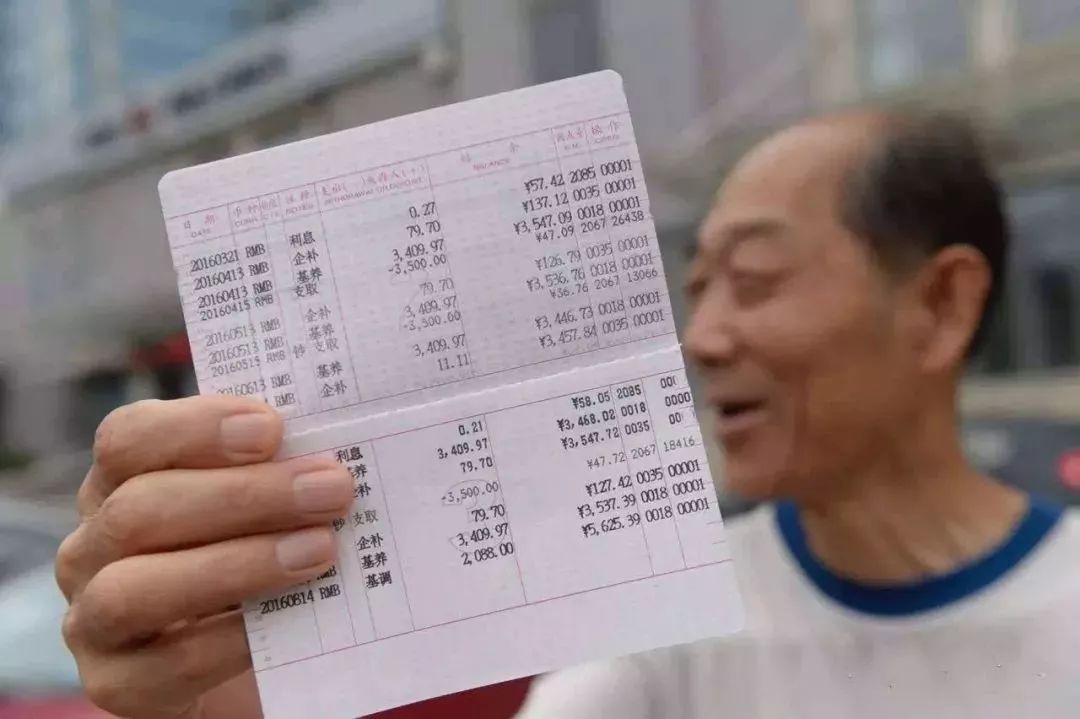 日期 币种 注释 支出(-)或存入(+) 结余 操作
DATE CURR NOTES WITHDRAWAL OR DEPOSIT BALANCE OPER
20160321 RMB 利息 0.27 ¥57.42 2085 00001
20160413 RMB 企补 79.70 ¥137.12 0035 00001
20160413 RMB 基养 3,409.97 ¥3,547.09 0018 00001
20160415 RMB 支取 -3,500.00 ¥47.09 2067 26438
20160513 RMB 企补 79.70 ¥126.79 0035 00001
20160513 RMB 基养 3,409.97 ¥3,536.76 0018 00001
20160515 RMB 钞 支取 -3,500.00 ¥36.76 2067 13066
20160613 RMB 基养 3,409.97 ¥3,446.73 0018 00001
RMB 企补 11.11 ¥3,457.84 0035 00001
利息 0.21 ¥58.05 2085
基养 3,409.97 ¥3,468.02 0018
企补 79.70 ¥3,547.72 0035
钞 支取 -3,500.00 ¥47.72 2067 18416
企补 79.70 ¥127.42 0035 00001
基养 3,409.97 ¥3,537.39 0018 00001
20160814 RMB 基调 2,088.00 ¥5,625.39 0018 00001